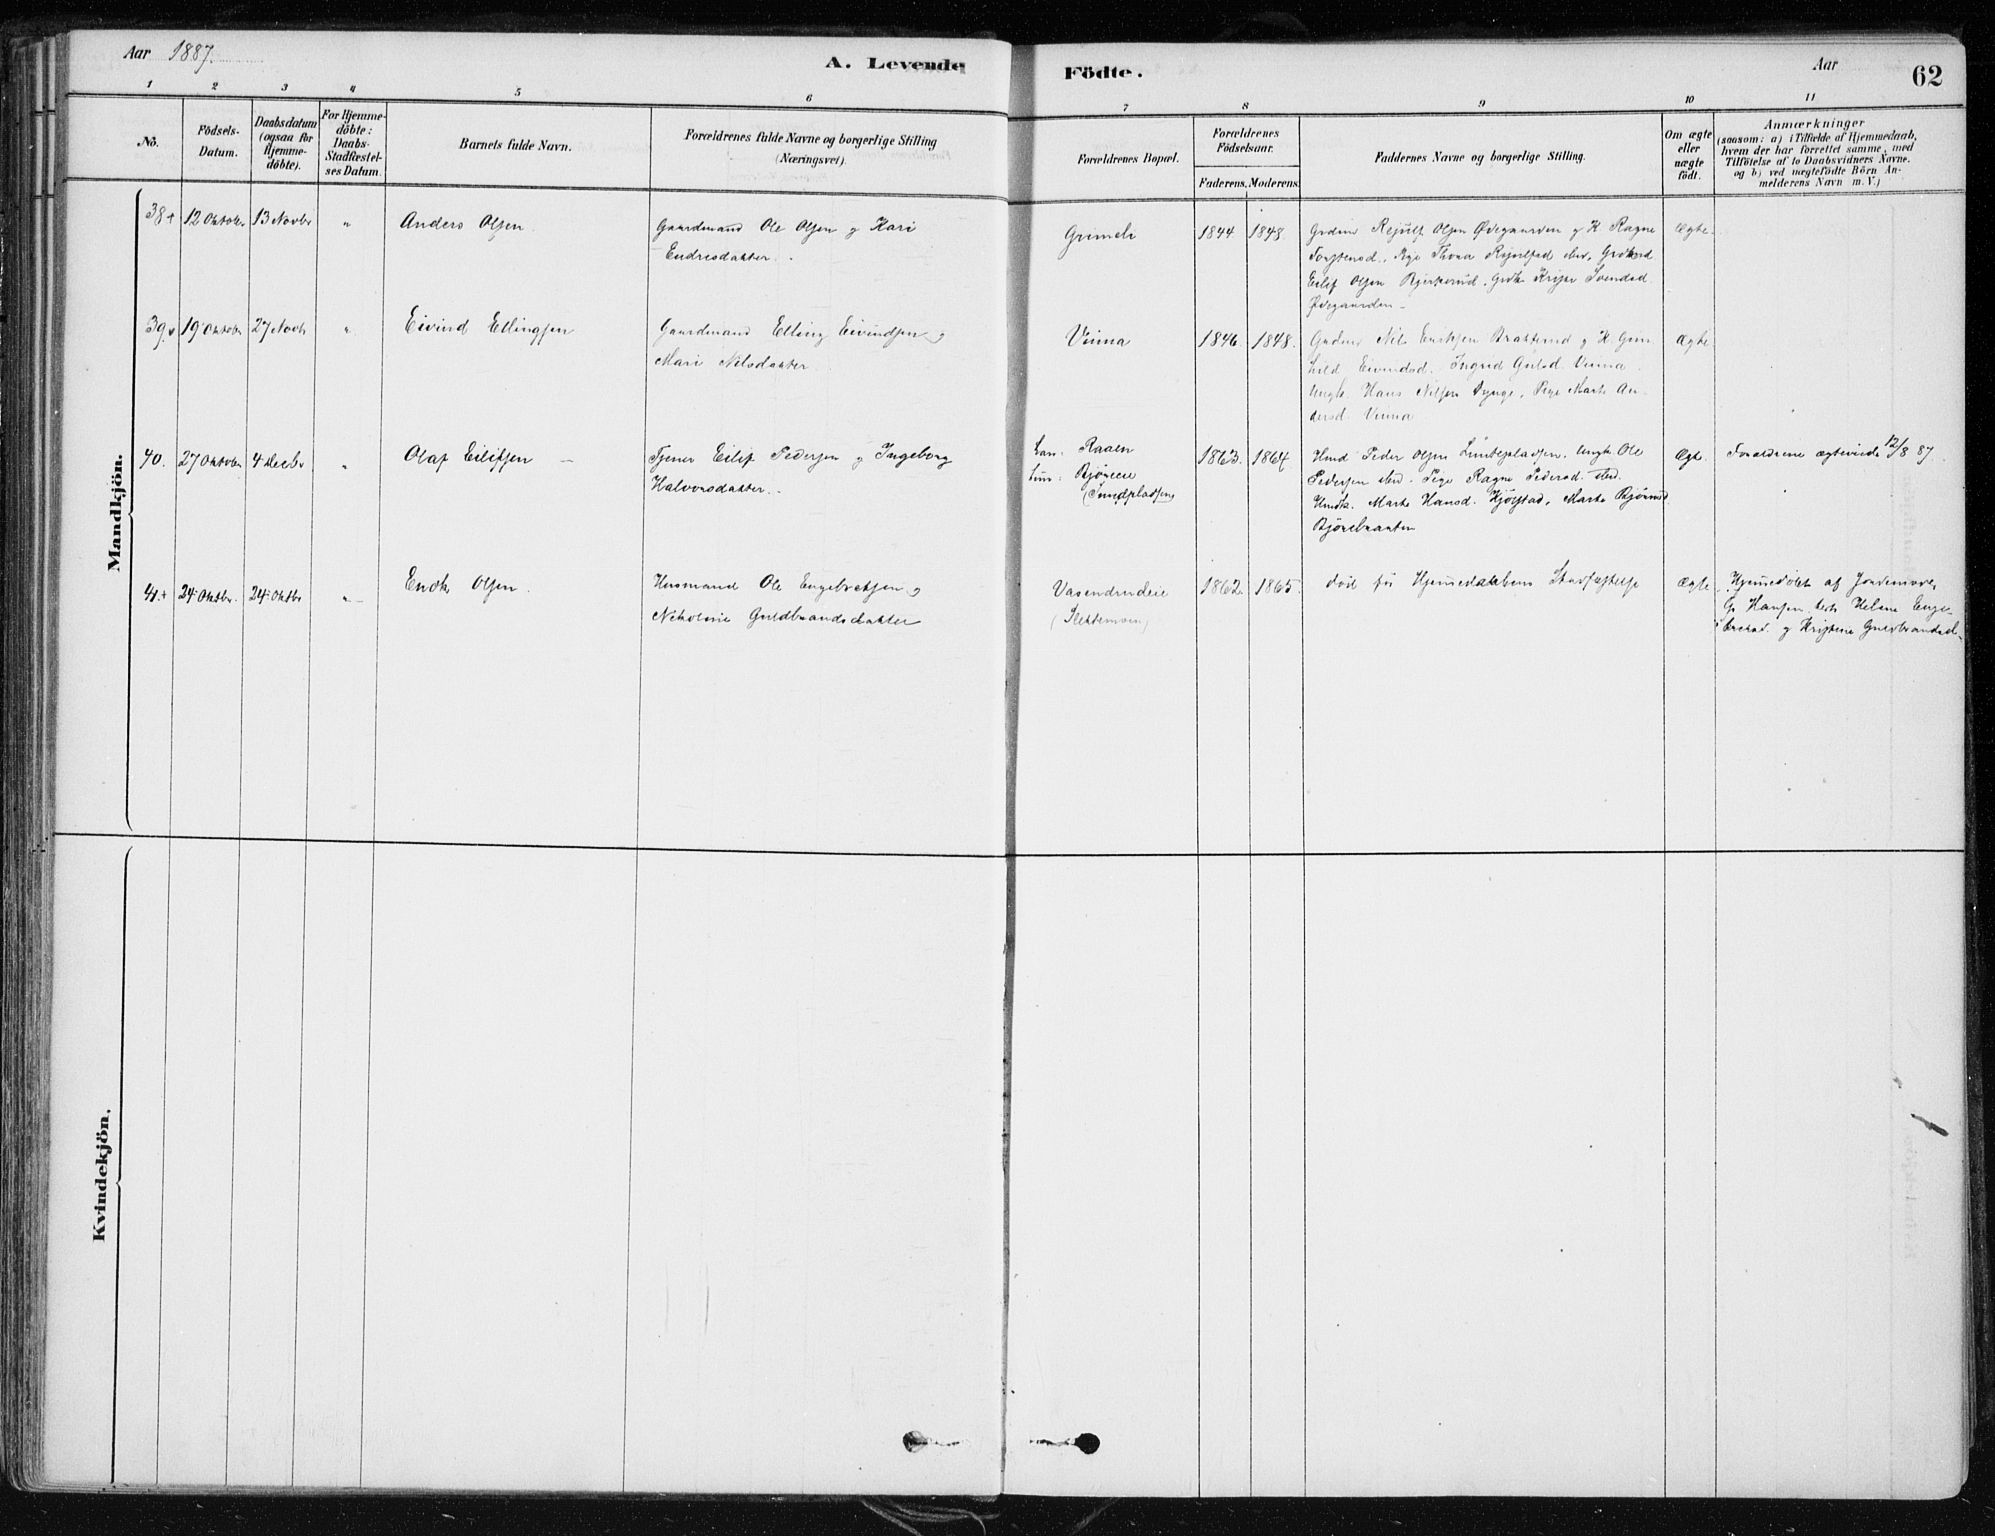 Aar 1887.
A. Levende Födte.
Aar
62
1 2 3 4 5 6 7 8 9 10 11
No.
Födsels-
Datum.
Daabsdatum
(ogsaa for
Hjemme-
döbte).
For Hjemme-
döbte:
Daabs-
Stadfæstel-
ses Datum.
Barnets fulde Navn.
Forældrenes fulde Navne og borgerlige Stilling
(Næringsvei).
Forældrenes Bopæl.
Forældrenes
Födselsaar.
Faderens. Moderens.
Faddernes Navne og borgerlige Stilling.
Om ægte
eller
uægte
födt.
Anmærkninger
(saasom: a) i Tilfælde af Hjemmedaab,
hvem der har forrettet samme, med
Tilföielse af to Daabsvidners Navne.
og b) ved uægtefödte Börn An-
melderens Navn m. V.)
Mandkjön.
38+ 12 Oktober 13 Novbr " Anders Olsen
Gaardmand Ole Olsen og Kari
Endresdatter.
Grimeli
1844 1848
Olsen Ødegaarden og K. Ragne
Thona
Eilif Olsen Bjerkerud.
Ødegaarden
Ægte
39+ 19 Oktober 27 Novbr " Eivind Ellingsen
Gaardmand Elling Eivindsen og
Mari Nilsdatter
Vinna
1846. 1848.
K. Gun-
hild Eivindsd. Ingrid Gulsd. Vinna
Ungk. Hans Nilsen Pige Marte An-
dersd. Vinna
Ægte
40. 27 Oktober 4 Decbr " Olaf Eilifsen
Tjener Eilif Pedersen og Ingeborg
Halvorsdatter.
Raaen
Bjørnere
1863. 1864
Hmd Peder Olsen Ungk. Ole
Pedersen ibid. Pige Ragne Pedersd. ibid.
Marte Hansd. Marte Bjørnsd
Ægte.
Forældrene ægteviede 12/8 87.
41+ 24 Oktbr. 24 Oktbr " Endre Olsen
Husmand Ole Engebretsen og
Nikoline Guldbrandsdatter
Vasendrudeie
1862. 1865.
død før Hjemmedaabens Stadfæstelse
Ægte
Hjemmedøbt af Jordemoder
G. Hansen Helene Enge-
bretsd. og Kristine Guldbrandsd.
Kvindekjön.